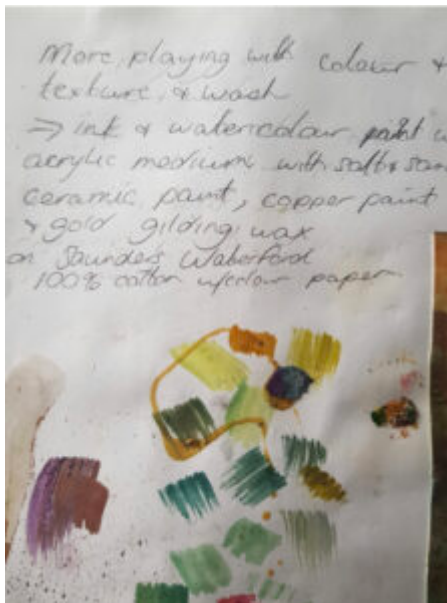 More playing with colour &
texture & wash
⇒ ink & watercolour paint w
acrylic medium with salt & san
ceramic paint, copper paint
& gold gilding wax
on Saunders Waterford
100% cotton w/colour paper